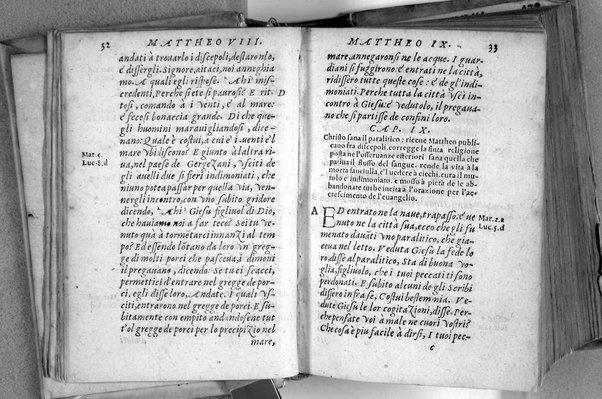 32 MATTHEO VIII.
andati à trouarlo i discepoli, destaronlo,
e dissergli. Signore, aitaci, noi anneghia
mo. A quali egli rispose. Ahi miscredenti,
Perche siete si paurosi? E ritto
D
si, comando à i venti, e al mare:
e fecesi bonaccia grande. Di che que
gli huomini marauigliandosi, dice-
uano: Quale è costui, à cui e i uenti e'l
mare vbidiscono? E giunto à l'altra ri
Mar. 5.
ua, nel paese de Gergezani, vsciti de
Luc. 8. d
gli auelli due si fieri indimoniati, che
niuno potea passar per quella via, ven-
nergli incontro, con vno subito gridore
dicendo, Ahi Giesu figliuol di Dio,
che habbiamo noi a far teco? Sei tu ve
nuto quà à tormentarci innanzi al tem
po? Ed essendo lotano da loro vn greg-
ge di molti porci che pasceua, i dimoni
il pregauano, dicendo. Se tu ci scacci,
permettici d'entrare nel gregge de por-
ci. egli disse loro, Andate. I quali vs-
citi, entrarono nel gregge de porci. E su-
bitamente con empito andandosene tut
t'ol gregge de porci per lo precipizio nel
mare,
MATTHEO IX. 33
mare, annegaronsi ne le acque. I guar-
diani si fuggirono: e entrati ne la città,
ridissero tutte queste cose: e de gl'indi-
moniati. Perche tutta la città vsci in-
contro à Giesu: e vedutolo, il pregaua-
no che si partisse de confini loro.
CAP. IX.
Christo sana il paralitico: riceue Mattheo publi-
cano fra discepoli. corregge la finta religione
posta ne l'osseruanze esteriori. sana quella che
patiua il flusso del sangue. rende la vita à la
morta fanciulla, e'l uedere à ciechi. cura il mu-
tolo e indimoniato. e mosso à pietà de le ab-
bandonate turbe incita à l'orazione per l'ac-
crescimento de l'euangelio.
A
ED entrato ne la naue, trapassò: e ue
Mar. 2. a
nuto ne la città sua, ecco che gli fu
Luc. 5. d
menato dauāti vno paralitico, che gia-
ceua nel letto. Veduta Giesu la fede lo
ro, disse al paralitico, Sta di buona vo-
glia, figliuolo, che i tuoi peccati ti sono
perdonati. E subito alcuni de gli Scribi
dissero infra se, Costui bestemmia. Ve-
dute Giesu le lor cogitazioni, disse. Per-
che pensate voi à male ne cuori vostri?
Che cosa è piu facile à dirsi, I tuoi pec-
c